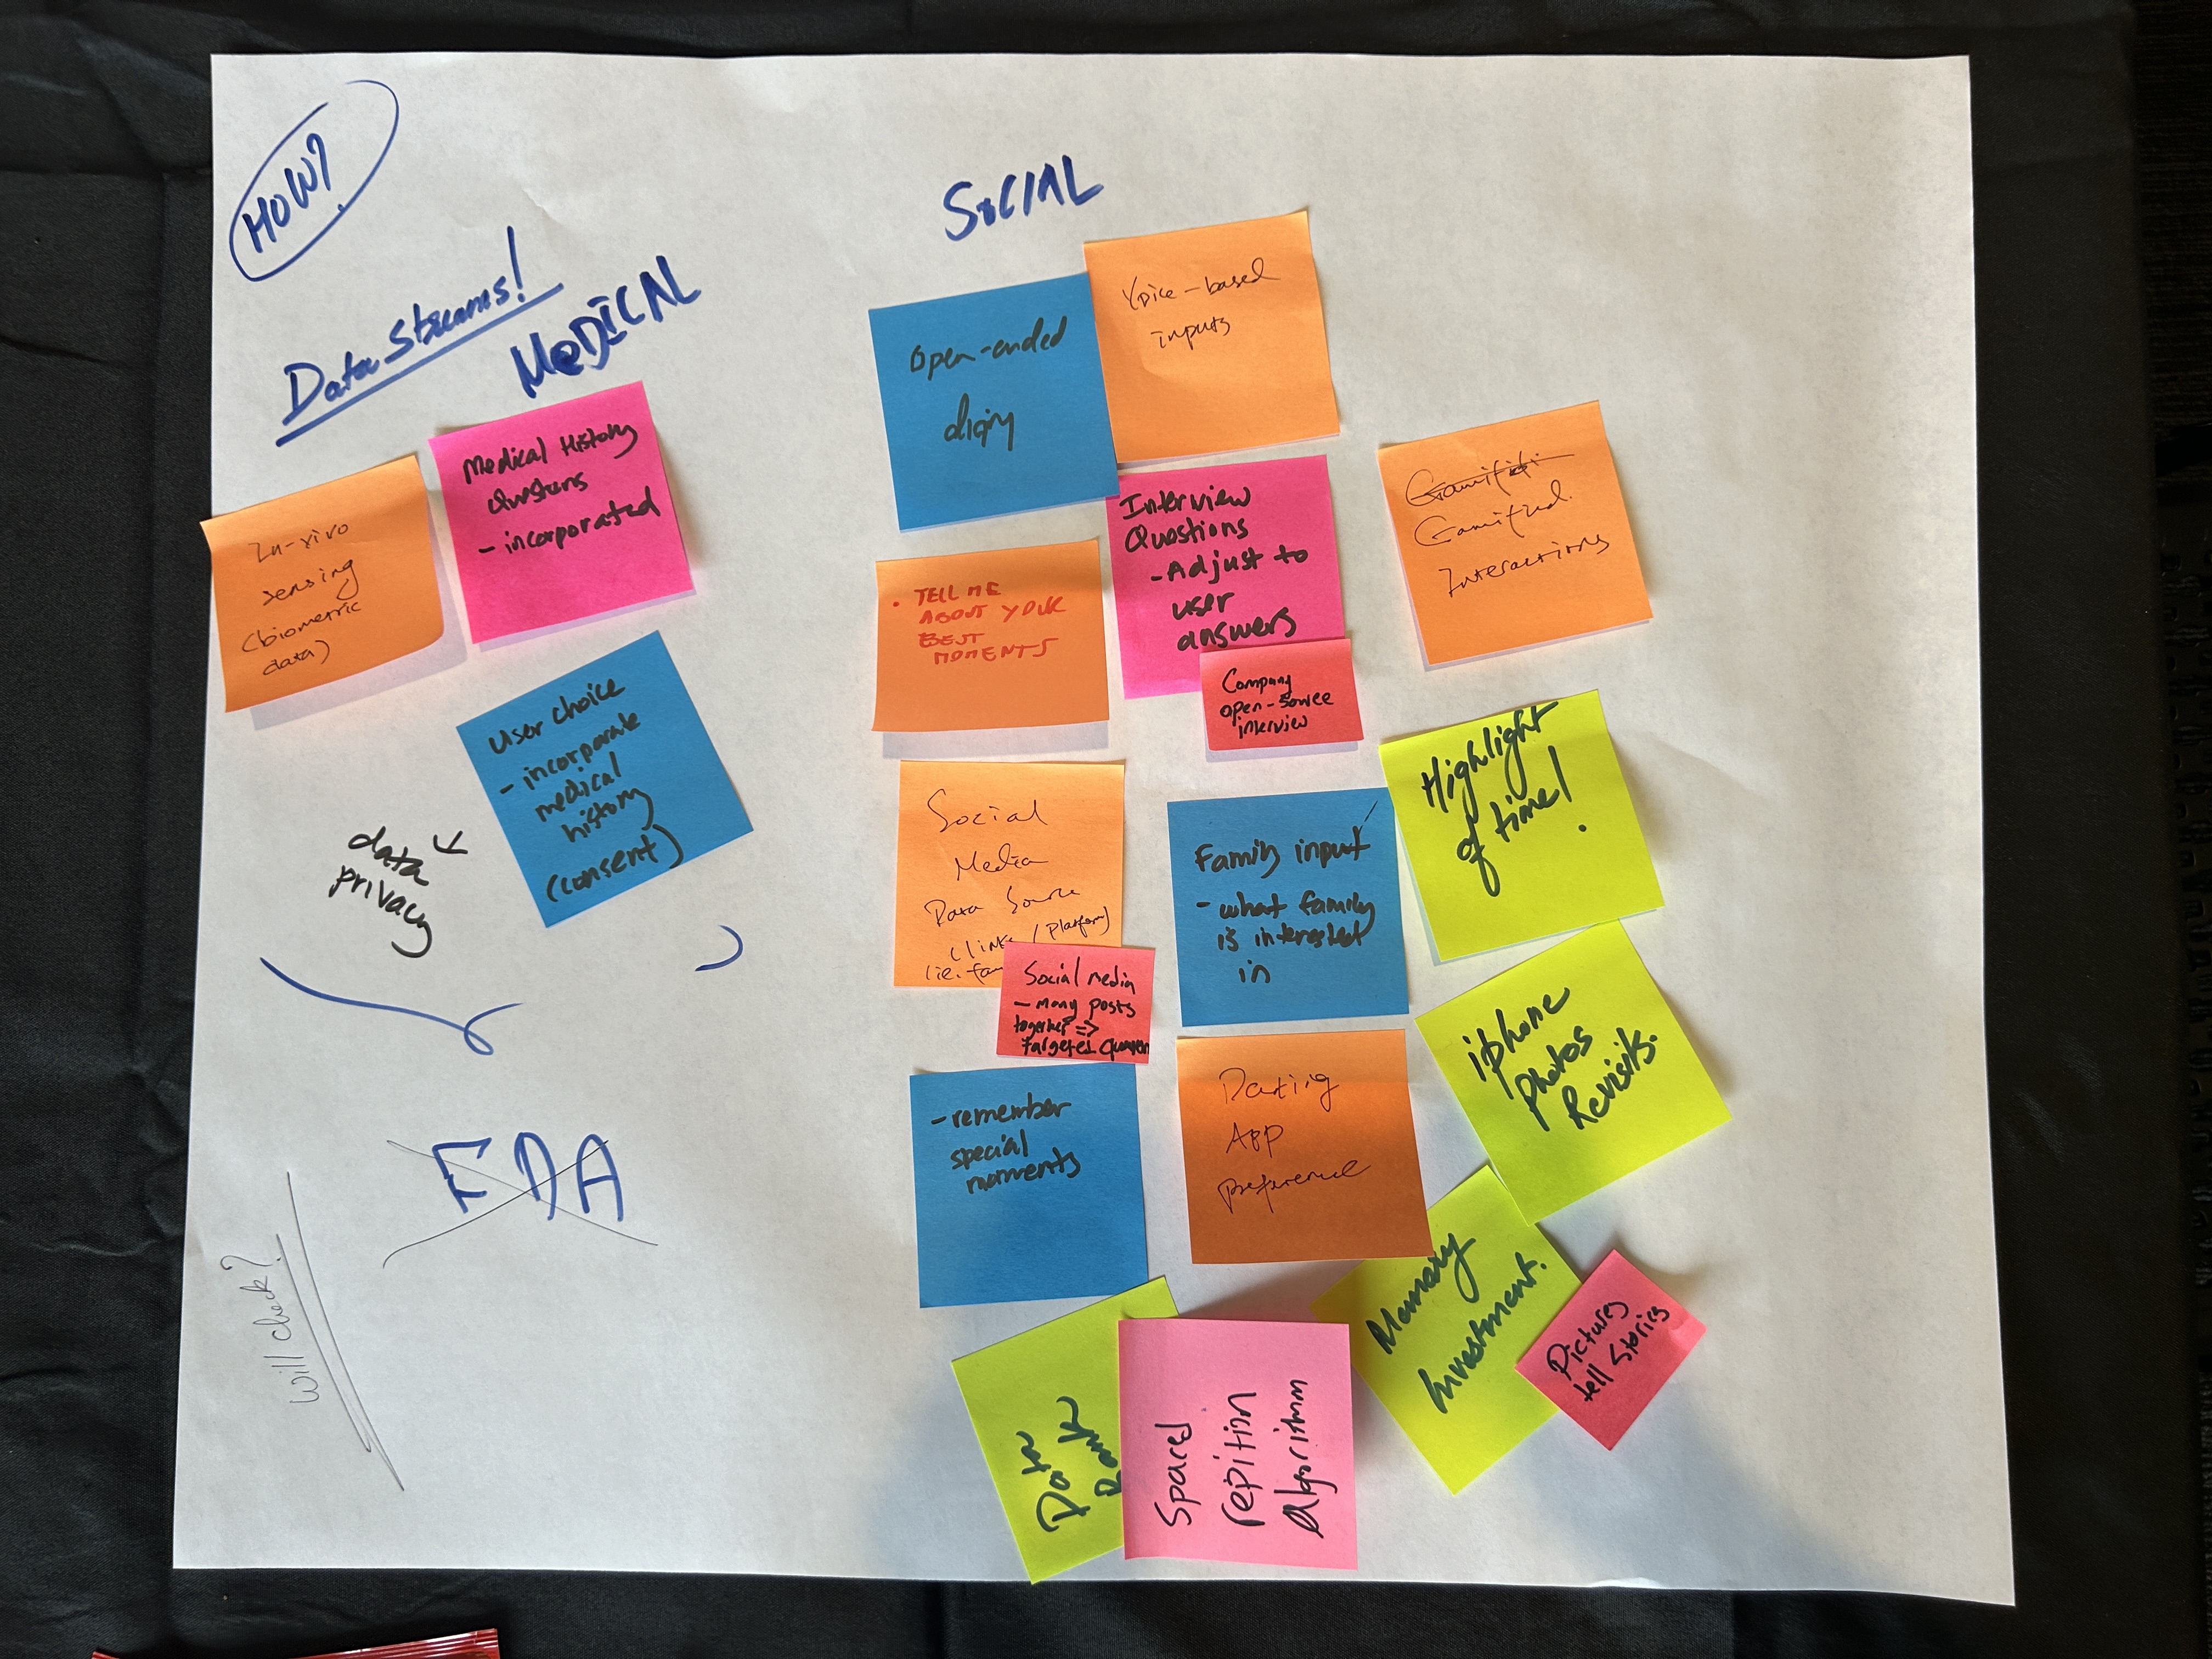 HOW?
Data Streams!
MEDICAL
In-vivo
sensing
(biometric
data)
Medical History
Questions
- incorporated
User choice
- incorporate
medical
history
(consent)
data
privacy
FDA
Will check?
SOCIAL
Open-ended
diary
Voice-based
inputs
• TELL ME
ABOUT YOUR
BEST
MOMENTS
Interview
Questions
- Adjust to
user
answers
Company
open-source
interview
Gamified
Interactions
Social
Media
Data Source
(links/platform)
(ie.
Social media
- Many posts
together =>
targeted
Family input
- what family
is interested
in
Highlight
of time!
iphone
photos
Revisits.
- remember
special
moments
Dating
App
preference
Memory
Investment.
Pictures
tell stories
Data
Bank
Spaced
repition
algorithm